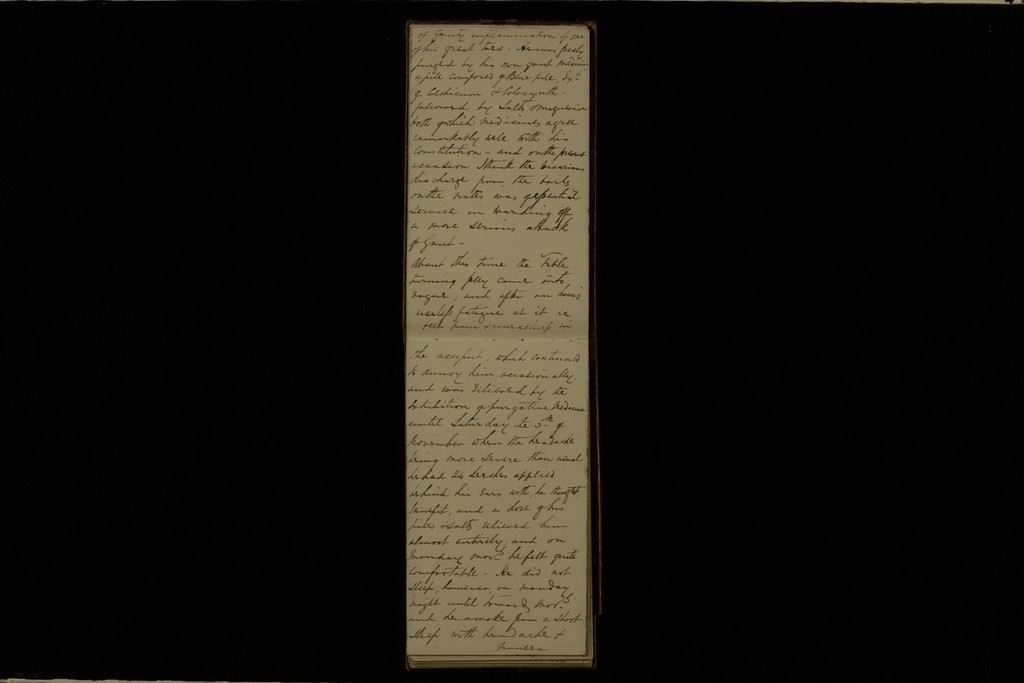 of Gouty inflammation of one
of his great toes. He was freely
purged by his own gout medicine
a pill composed of Blue pill, Ext.
of Colchicum & Colocynth -
followed by Salts & magnesia
both of which medicines agree
remarkably well with his
constitution - and on the present
occasion I think the vicarious
discharge from the boils
on the nates was of essential
service in warding off
a more serious attack
of Gout -
About this time the Table
turning folly came into
vogue, and after an hour's
useless fatigue at it he
felt pain & uneasiness in
the occiput, which continued
to annoy him occasionally
and was relieved by the
exhibition of purgative medicine
until Saturday the 5th of
November when the headache
being more severe than usual
he had 24 Leeches applied
behind his ears with, he thought,
benefit, and a dose of his
pills & salts relieved him
almost entirely, and on
Monday morng. he felt quite
comfortable - He did not
sleep, however, on Monday
night until towards morg.
and he awoke from a short
sleep with headache &
nausea